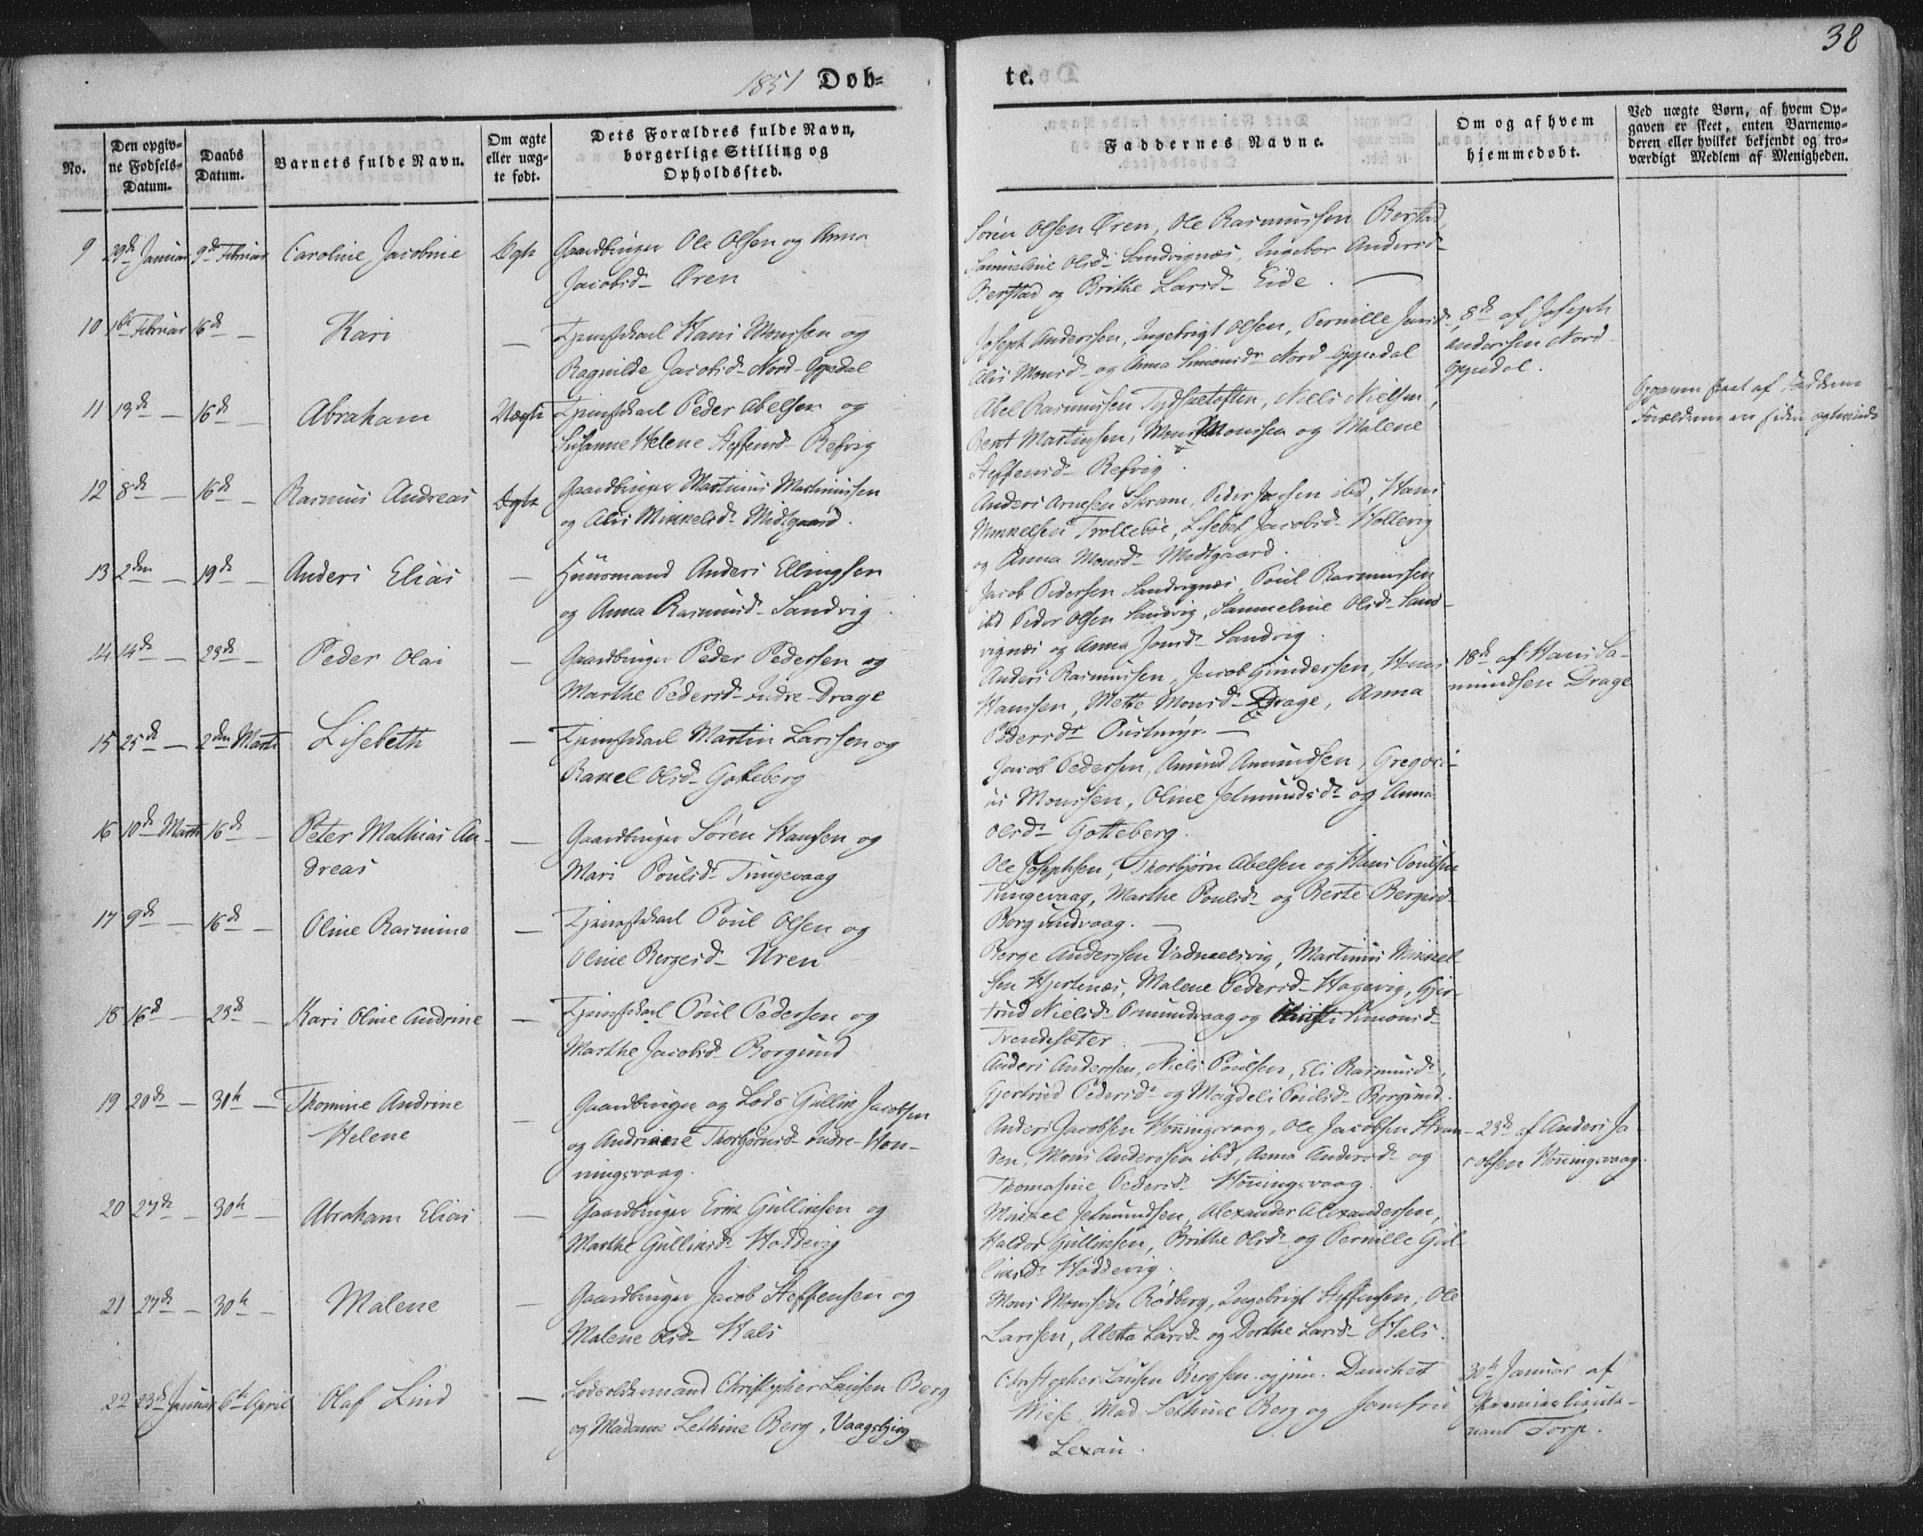 38
1851 Døb=
te.
No.
Den opgiv=
ne Fødsels=
Datum.
Daabs
Datum.
Barnets fulde Navn.
Om ægte
eller uæg=
te født.
Dets Forældres fulde Navn,
borgerlige Stilling og
Opholdssted.
Faddernes Navne.
Om og af hvem
hjemmedøbt.
Ved uægte Børn, af hvem Op=
gaven er skeet, enten Barnemo=
deren eller hvilket bekjendt og tro=
værdigt Medlem af Menigheden.
9 29de Januar 9de Februar Caroline Jacobine Ægte Gaardbruger Ole Olsen og Anna
Jacobsd- Øren
Søren Olsen Øren, Ole Rasmussen Berstad
Sammeline Olsd- Sandvignæs, Ingebor Andersd-
Berstad og Brithe Larsd- Eide.
10 1ste Februar 16de - Kari - Tjenestekarl Hans Monssen og
Ragnilde Jacobsd- Nord-Oppedal
Joseph Anderssen, Ingebrigt Olsen, Pernille Jensd-
Alis Monsd- og Anna Simonsd- Nord Oppedal
8de af Joseph
Anderssen Nord
Oppedal.
11 13de - 16de - Abraham Uægte Tjenestekarl Peder Abelsen og
Susanne Helene Steffensd- Refvig
Abel Rasmussen Tydsketoften, Niels Nielsen,
Bent Martinsen, Mons Monssen og Malene
Steffensd- Refvig.
Opgaven skeet af Fadderne
12 8de - 16de - Rasmus Andreas Ægte Gaardbruger Martinus Martinussen
og Alis Mikkelsd- Midtgaard.
Anders Arnesen Skram, Peder Jossen ibd, Hans
Mikkelsen Trollebøe, Lisebet Jacobsd- Hollevig
og Anna Monsd- Midtgaard.
13 2den - 19de - Anders Elias - Huusmand Anders Ellingsen
og Anna Rasmusd- Sandvig.
Jacob Pedersen Sandvignæs, Poul Rasmussen
ibd Peder Olsen Sandvig, Sammeline Olsd- Sand-
vignæs og Anna Jonsd- Sandvig.
14 14de - 23de - Peder Olai - Gaardbruger Peder Pedersen og
Marthe Pedersd- Indre-Drage
Anders Rasmussen, Jacob Gundersen, Hans
Hanssen, Mette Monsd- Drage, Anna
Pedersd- Pustmyr. -
18de af Hans Sa-
mundsen Drage
15 25de - 2den Marts Lisebeth - Tjenestekarl Martin Larssen og
Rakel Olsd- Gotteberg
Jacob Pedersen, Amund Amundsen, Gregori-
us Monssen, Oline Jetmundsd- og Anna
Olsd- Gotteberg.
16 10de Marts 16de - Peter Mathias An-
dreas
- Gaardbruger Søren Hansen og
Mari Poulsd- Tungevaag
Ole Josephsen, Thorbjørn Abelsen og Hans Poulsen
Tungevaag, Marthe Poulsd- og Berte Bergesd-
Borgundvaag. -
17 9de - 16de - Oline Rasmine - Tjenestekarl Poul Olsen og
Oline Bergesd- Uren
Berge Anderssen Vadmelsvig, Martinus Mikkel
sen Hjertenæs, Malene Pedersd- Hagevig, Gjer-
trud Nielsd- Osmundvaag og Simonsd-
Trendesæter.
18 16de - 23de - Kari Oline Andrine - Tjenestekarl Poul Pedersen og
Marthe Jacobsd- Borgund
Anders Anderssen, Niels Poulsen, Eli Rasmusd-,
Gjertrud Pedersd- og Magdeli Poulsd- Borgund.
19 20de - 30te - Thomine Andrine
Helene
- Gaardbruger og Lods Gullik Jacobsen
og Andriane Thorbjørnsd- Indre-Hon-
ningsvaag.
Anders Jacobsen Honningsvaag, Ole Jacobsen Stran-
den, Mons Anderssen ibd, Anna Andersd- og
Thomasine Pedersd- Honningsvaag.
23de af Anders Ja-
cobsen Honningsvaag.
20 27de - 30te - Abraham Elias - Gaardbruger Erik Gulliksen og
Marthe Gulliksd- Hoddevig
Mikkel Jetmundsen, Alexander Alexandersen,
Haldor Gulliksen, Brithe Olsd- og Pernille Gul-
liksd- Hoddevig.
21 27de - 30te - Malene - Gaardbruger Jacob Steffensen og
Malene Olsd- Hals
Mons Monssen Rødberg, Ingebrigt Steffensen, Ole
Larssen, Aletta Larsd- og Dorthe Larsd- Hals.
22 23de Januar 6te April Olaf Lind - Lodsoldermand Christopher Lausen Berg
og Madame Lethine Berg, Vaagsbjerg
Christopher Lausen Berg sen. og jun. Danchert
Wiese, Mad Lethine Berg og Jomfru
Lexau.
30te Januar af
Premierlieute-
nant Torp.